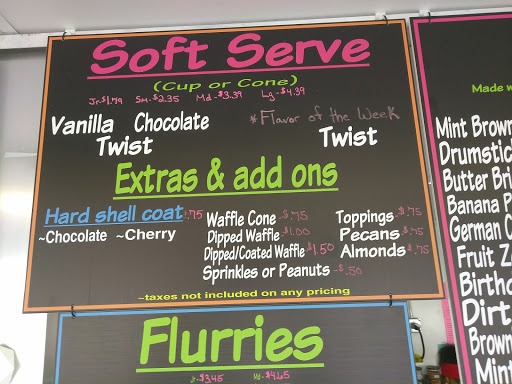 Soft Serve
(Cup or Cone)
Jr-$1.79 Sm-$2.35 Md-$3.39 Lg-$4.39
Vanilla Chocolate
Twist
*Flavor of the Week
Twist
Extras & add ons
Hard shell coat $.75
~Chocolate ~Cherry
Waffle Cone -$.75
Dipped Waffle -$1.00
Dipped/Coated Waffle $1.50
Sprinkles or Peanuts -$.50
Toppings -$.75
Pecans -$.75
Almonds -$.75
~taxes not included on any pricing
Flurries
Jr-$3.45 Md-$4.65
Made
Mint Brown
Drumstic
Butter Bri
Banana P
German C
Fruit
Birth
Dirt
Brown
Mint